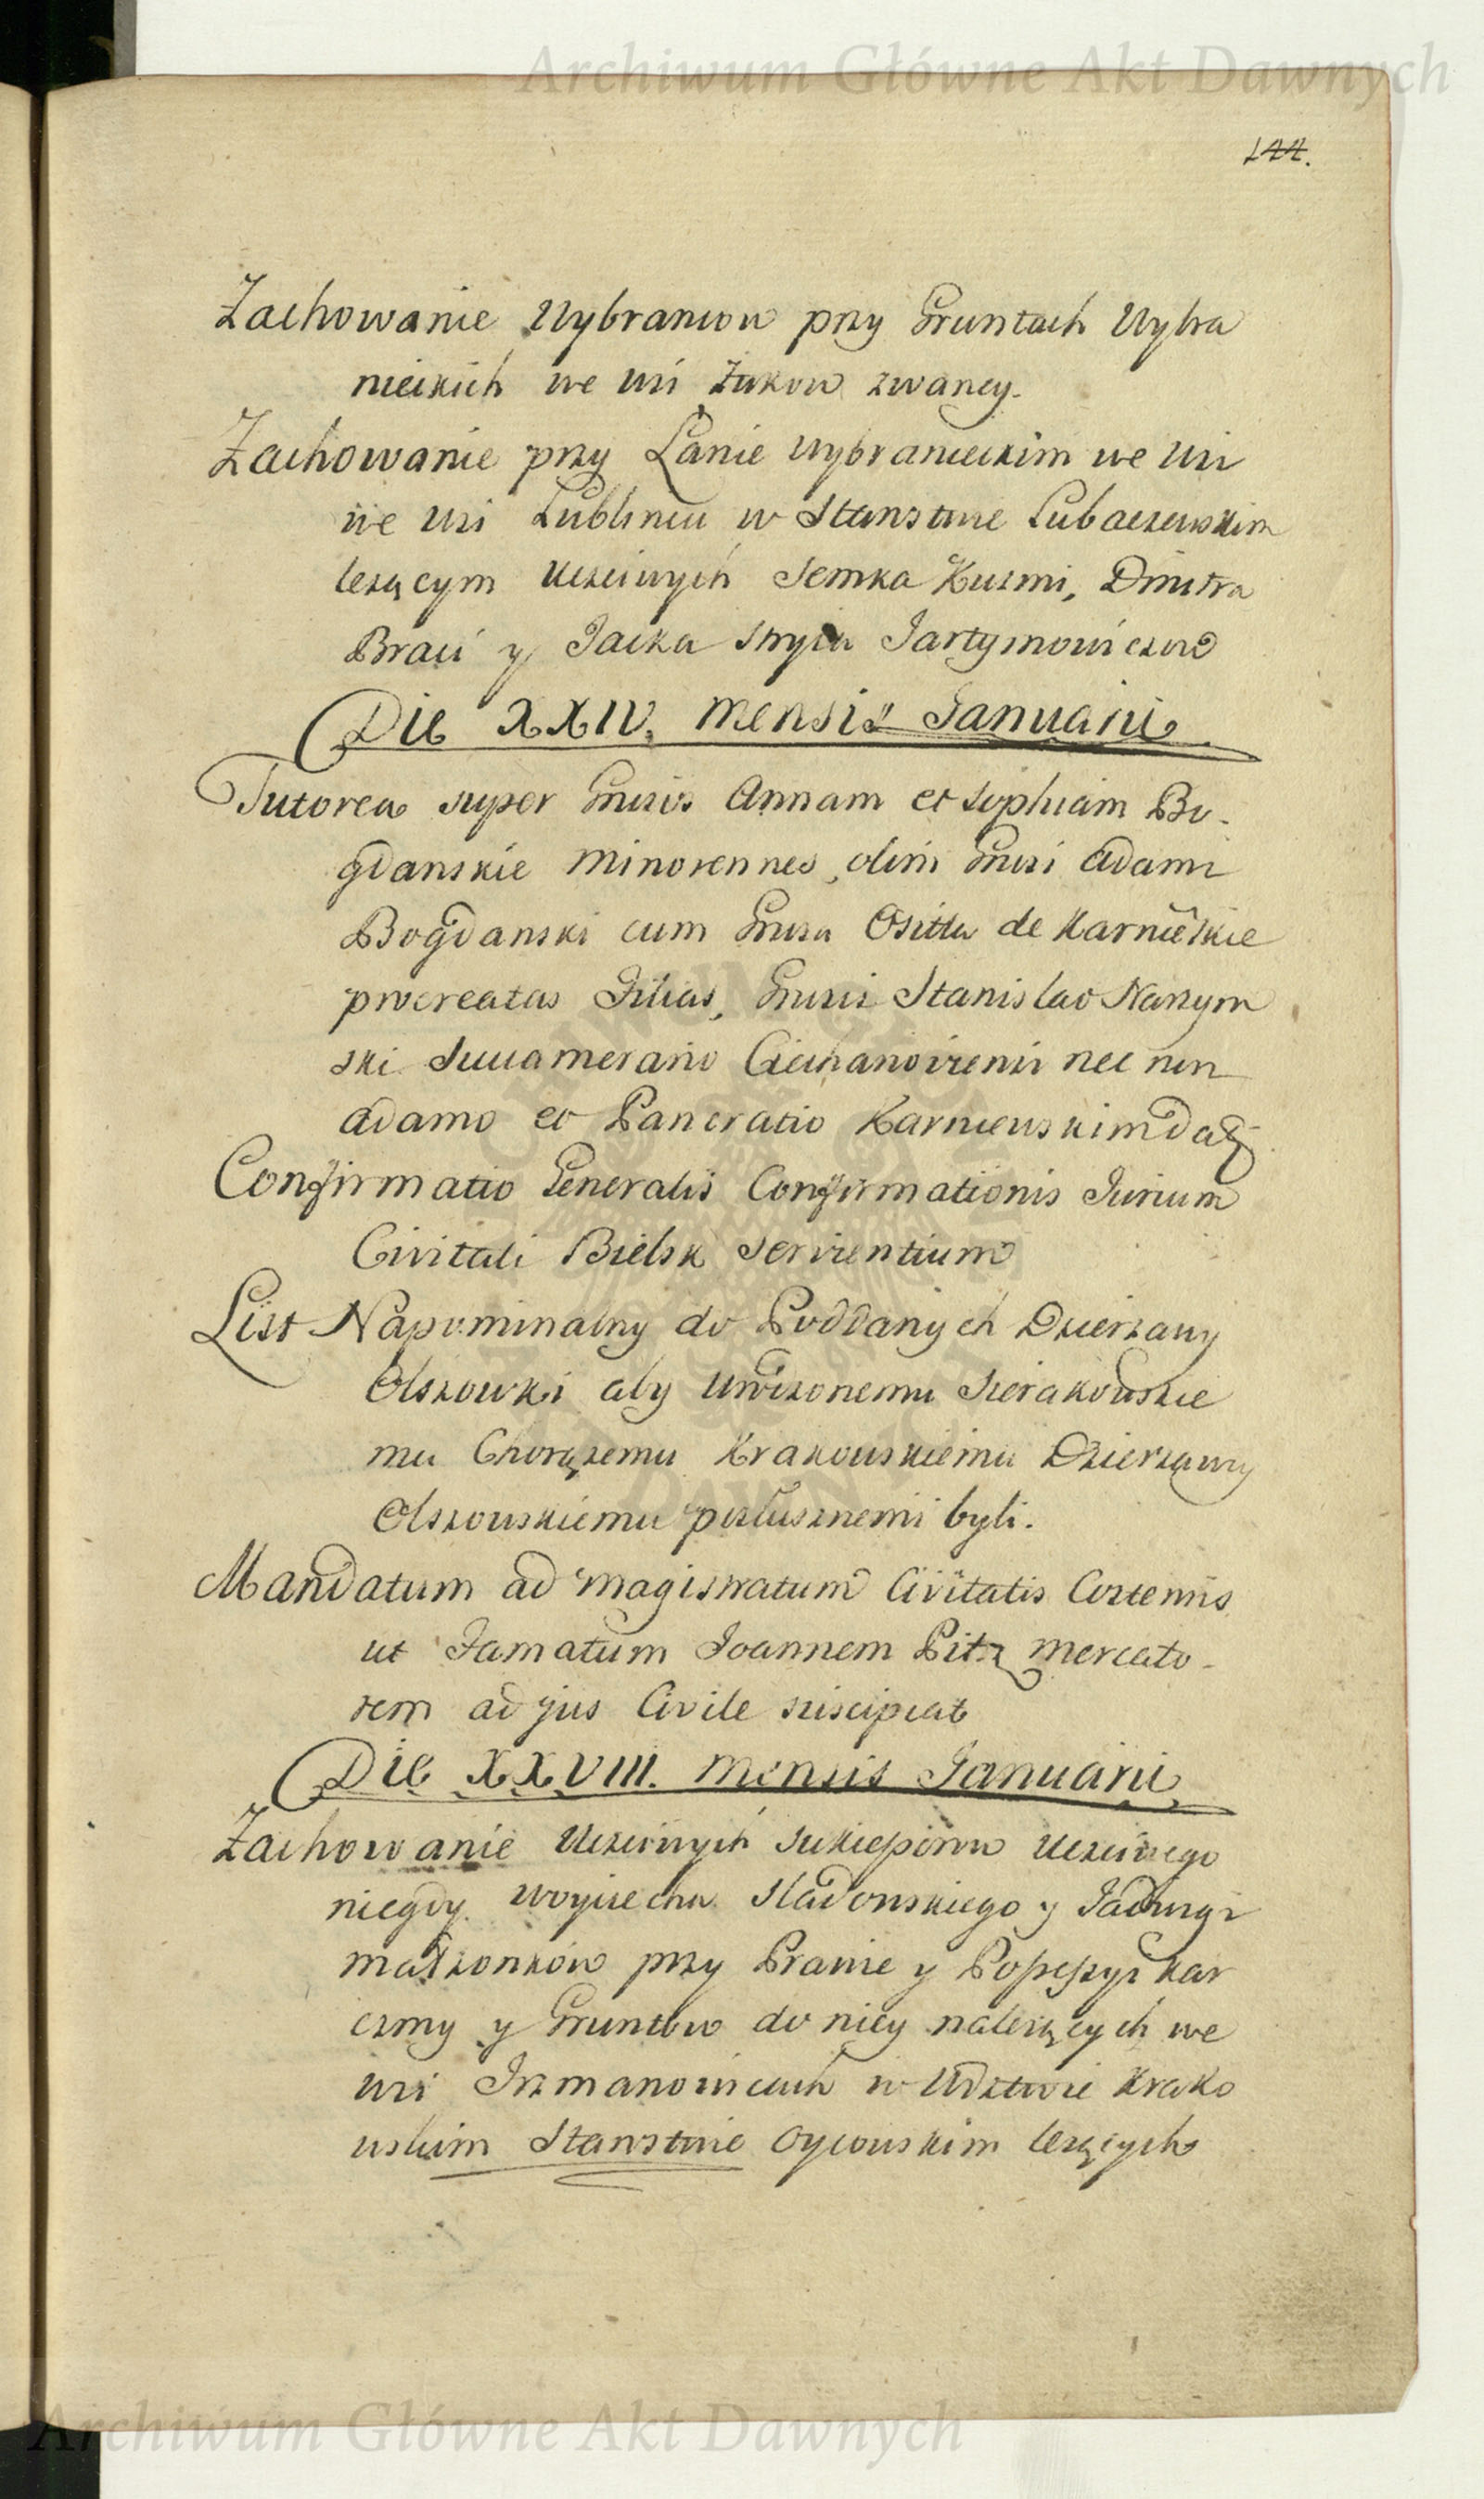 Archiwum Główne Akt Dawnych
144.
Zachowanie Wybrancow przy Gruntach Wybra
nieckich we wsi Zukow zwaney.
Zachowanie przy Łanie wybranieckim we wsi
we wsi Lublincu w Starostwie Lubaczewskim
leżącym Uczciwych Semka Kuzmi, Dmitra
Braci y Jacka Stryia Jartymowiczow
Die XXIV. Mensis Januarii
Tutorea super Gnrosos Annam et Sophiam Bo-
gdanskie Minorennes, olim Gnrosi Adami
Bogdanski cum Gnrosa Ositta de Karniẽskie
procreatas Filias, Gnrosis Stanislao Narzym
ski Succamerario Ciechanoviensi nec non
Adamo et Pancratio Karniewskim dat
Confirmatio Generalis Confirmationis Jurium
Civitati Bielsk servientium
List Napominalny do Poddanych Dzierzawy
Olszowki aby Urodzonemu Sierakowskie
mu Chorążemu Krakowskiemu Dzierzawcy
Olszowskiemu posłusznemi byli.
Mandatum ad Magistratum Civitatis Costensis
ut Famatum Joannem Pitz Mercato-
rem ad jus Civile suscipiat
Die XXVIII. Mensis Januarii
Zachowanie Uczciwych sukcessorow Uczciwego
niegdy Woyciecha Sladowskiego y Jadwigi
małzonków przy Prawie y Possessyi kar
czmy y Gruntow do niey należących we
wsi Jrzmanowicach w Wdztwie Krako
wskim Starostwie Oycowskim leżących
Archiwum Główne Akt Dawnych